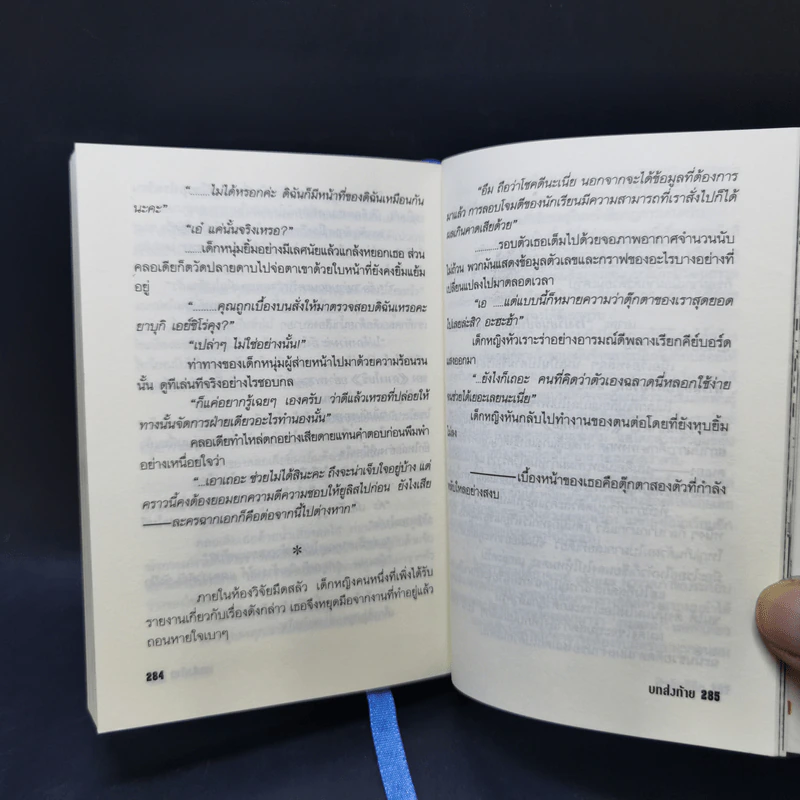 “........ไม่ได้หรอกค่ะ ดิฉันก็มีหน้าที่ของดิฉันเหมือนกัน
นะคะ”
“เอ๋ แค่นั้นจริงเหรอ?”
.......เด็กหนุ่มยิ้มอย่างมีเลศนัยแล้วแกล้งหยอกเธอ ส่วน
คลอเดียก็ตวัดปลายดาบไปจ่อตาเขาด้วยใบหน้าที่ยังคงยิ้มแย้ม
อยู่
“.........คุณถูกเบื้องบนสั่งให้มาตรวจสอบดิฉันเหรอคะ
ยาบุกิ เอย์ชิโร่คุง?”
“เปล่าๆ ไม่ใช่อย่างนั้น!”
ท่าทางของเด็กหนุ่มผู้ส่ายหน้าไปมาด้วยความร้อนรน
นั้น ดูทีเล่นทีจริงอย่างไรชอบกล
“ก็แค่อยากรู้เฉยๆ เองครับ ว่าดีแล้วเหรอที่ปล่อยให้
ทางนั้นจัดการฝ่ายเดียวอะไรทำนองนั้น”
คลอเดียทำไหล่ตกอย่างเสียดายแทนคำตอบก่อนพึมพำ
อย่างเหนื่อยใจว่า
“...เอาเถอะ ช่วยไม่ได้สินะคะ ถึงจะน่าเจ็บใจอยู่บ้าง แต่
คราวนี้คงต้องยอมยกความดีความชอบให้ยูลิสไปก่อน ยังไงเสีย
———ละครฉากเอกก็คือต่อจากนี้ไปต่างหาก”
*
ภายในห้องวิจัยมืดสลัว เด็กหญิงคนหนึ่งที่เพิ่งได้รับ
รายงานเกี่ยวกับเรื่องดังกล่าว เธอจึงหยุดมือจากงานที่ทำอยู่แล้ว
ถอนหายใจเบาๆ
284
“อืม ถือว่าโชคดีนะเนี่ย นอกจากจะได้ข้อมูลที่ต้องการ
มาแล้ว การลอบโจมตีของนักเรียนมีความสามารถที่เราสั่งไปก็ได้
ผลเกินคาดเสียด้วย”
..........รอบตัวเธอเต็มไปด้วยจอภาพอากาศจำนวนนับ
ไม่ถ้วน พวกมันแสดงข้อมูลตัวเลขและกราฟของอะไรบางอย่างที่
เปลี่ยนแปลงไปมาตลอดเวลา
“เอ .....แต่แบบนี้ก็หมายความว่าตุ๊กตาของเราสุดยอด
ไปเลยล่ะสิ? อะฮะฮ้า”
เด็กหญิงหัวเราะร่าอย่างอารมณ์ดีพลางเรียกคีย์บอร์ด
แสงออกมา
“...ยังไงก็เถอะ คนที่คิดว่าตัวเองฉลาดนี่หลอกใช้ง่าย
จนช่วยได้เยอะเลยนะเนี่ย”
เด็กหญิงหันกลับไปทำงานของตนต่อโดยที่ยังหุบยิ้ม
ไม่ลง
————เบื้องหน้าของเธอคือตุ๊กตาสองตัวที่กำลัง
หลับใหลอย่างสงบ
บทส่งท้าย 285